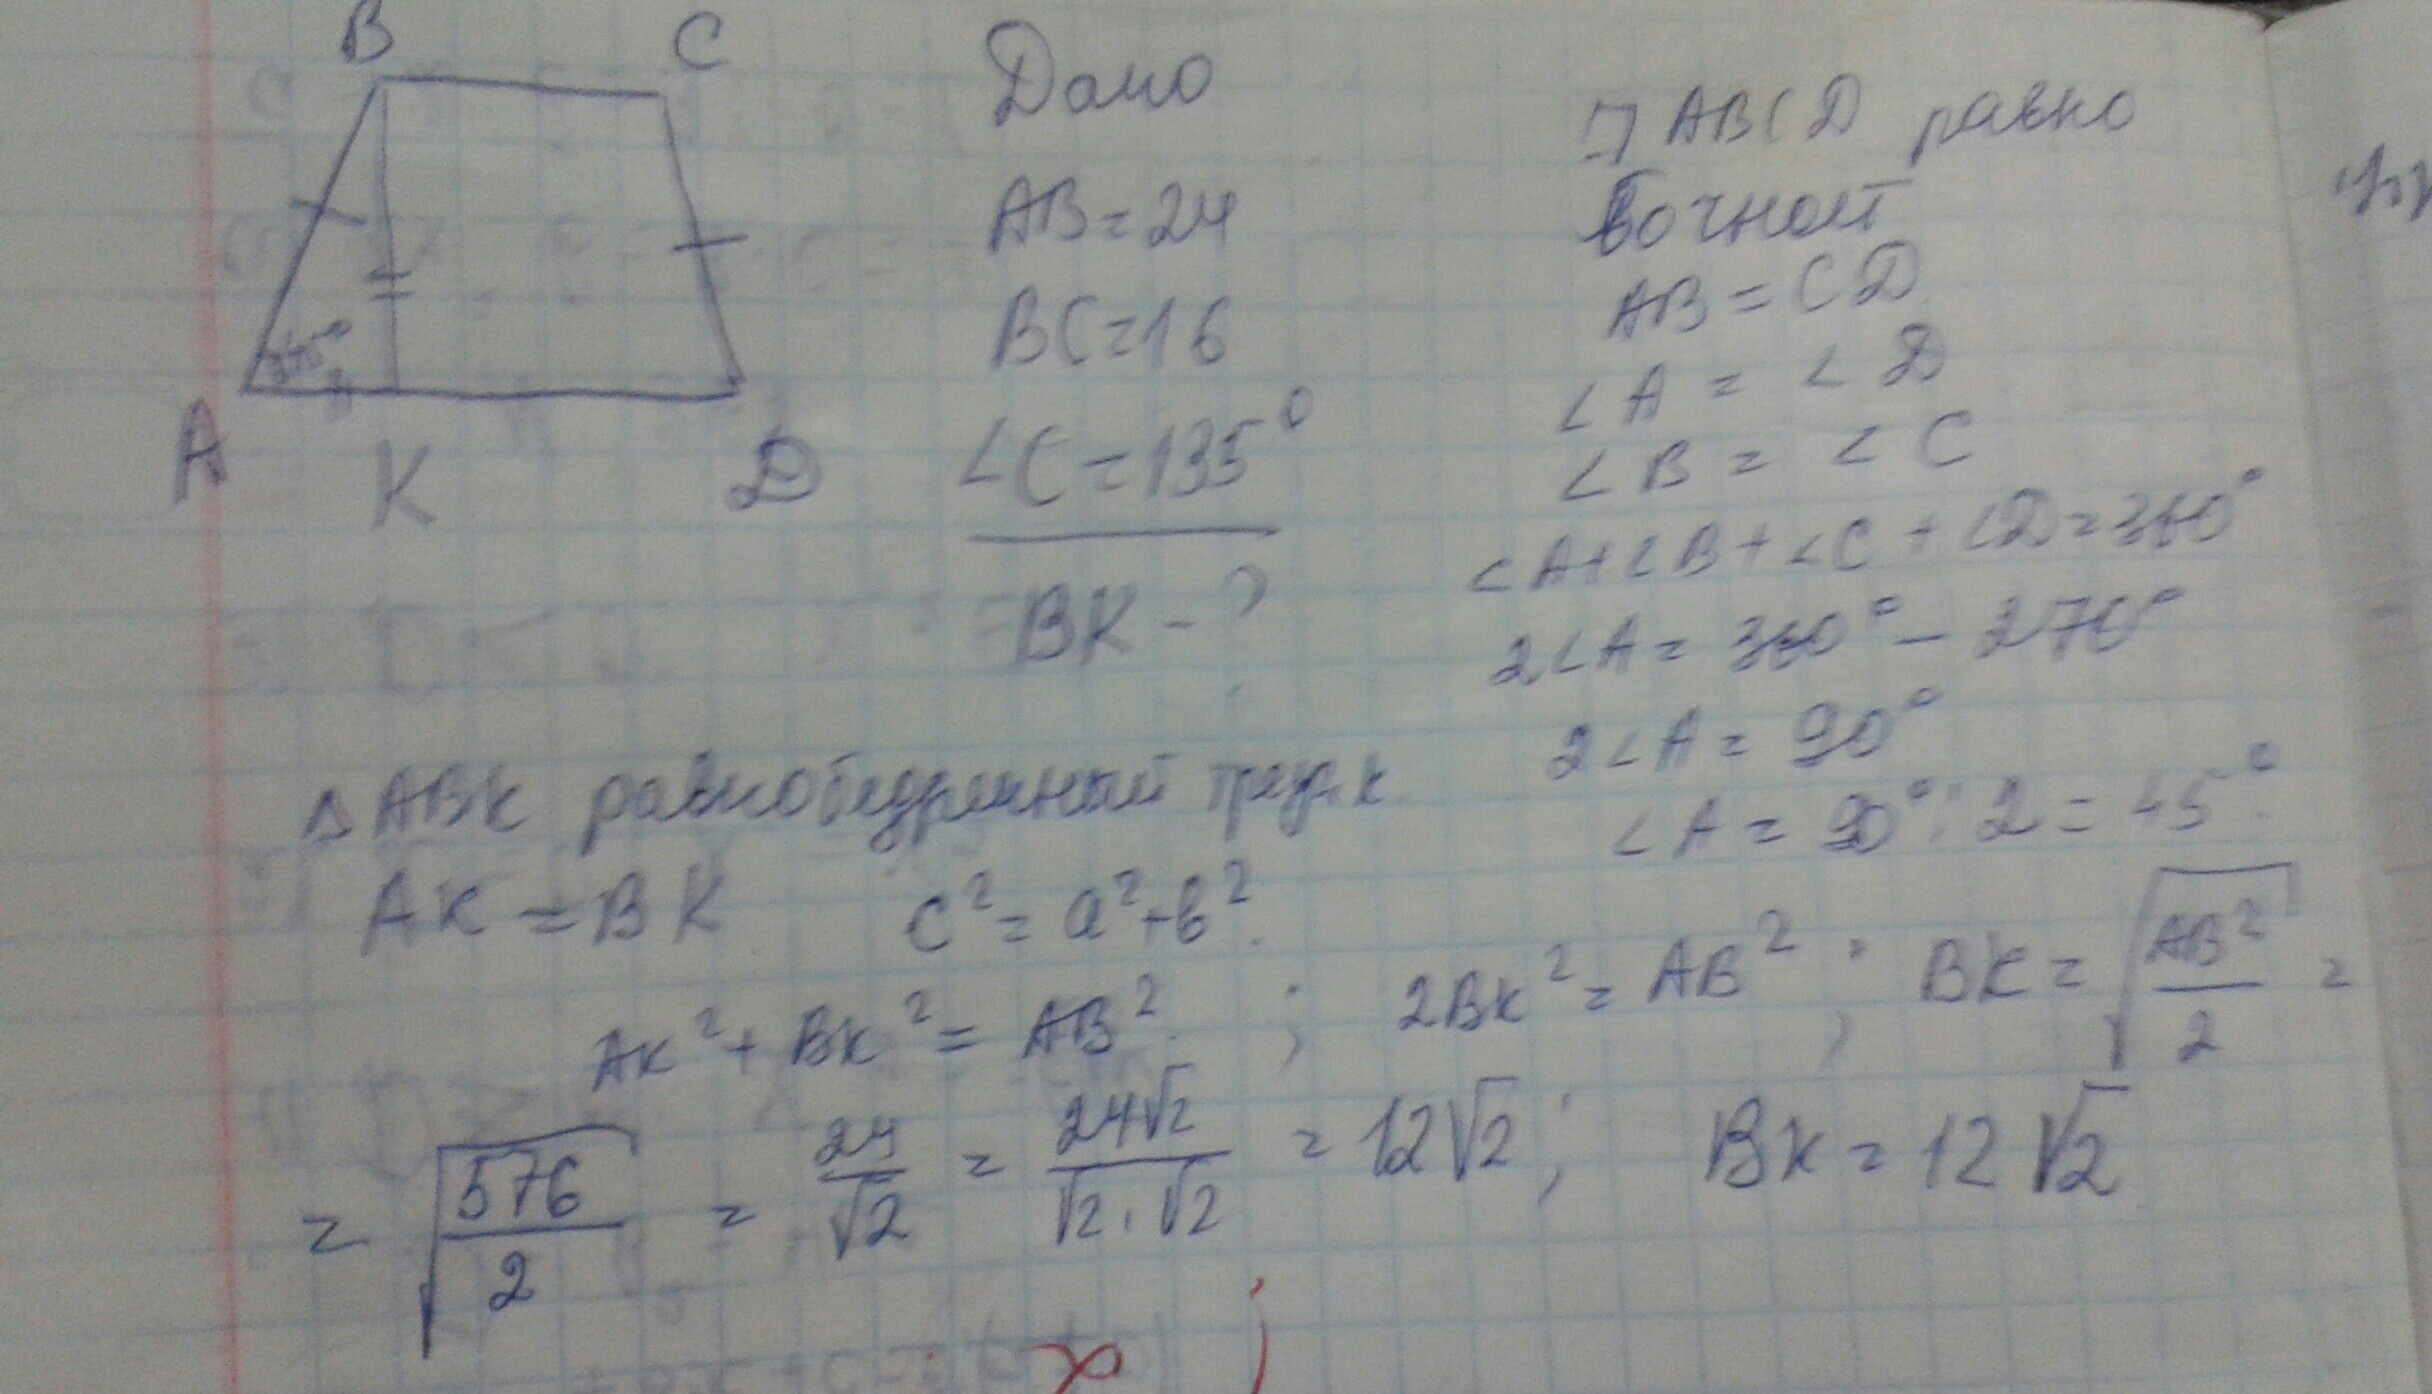 B C
A K D
Дано
AB=24
BC=16
∠C=135°
BK-?
ABCD равно
бочной
AB=CD
∠A=∠D
∠B=∠C
∠A+∠B+∠C+∠D=360°
2∠A=360°-270°
2∠A=90°
∠A=90°:2=45°
△ABK равнобедренный
AK=BK c²=a²+b².
AK²+BK²=AB²; 2BK²=AB²; BK=√(AB²/2)=
=√(576/2)=24/√2=24√2/(√2·√2)=12√2; BK=12√2